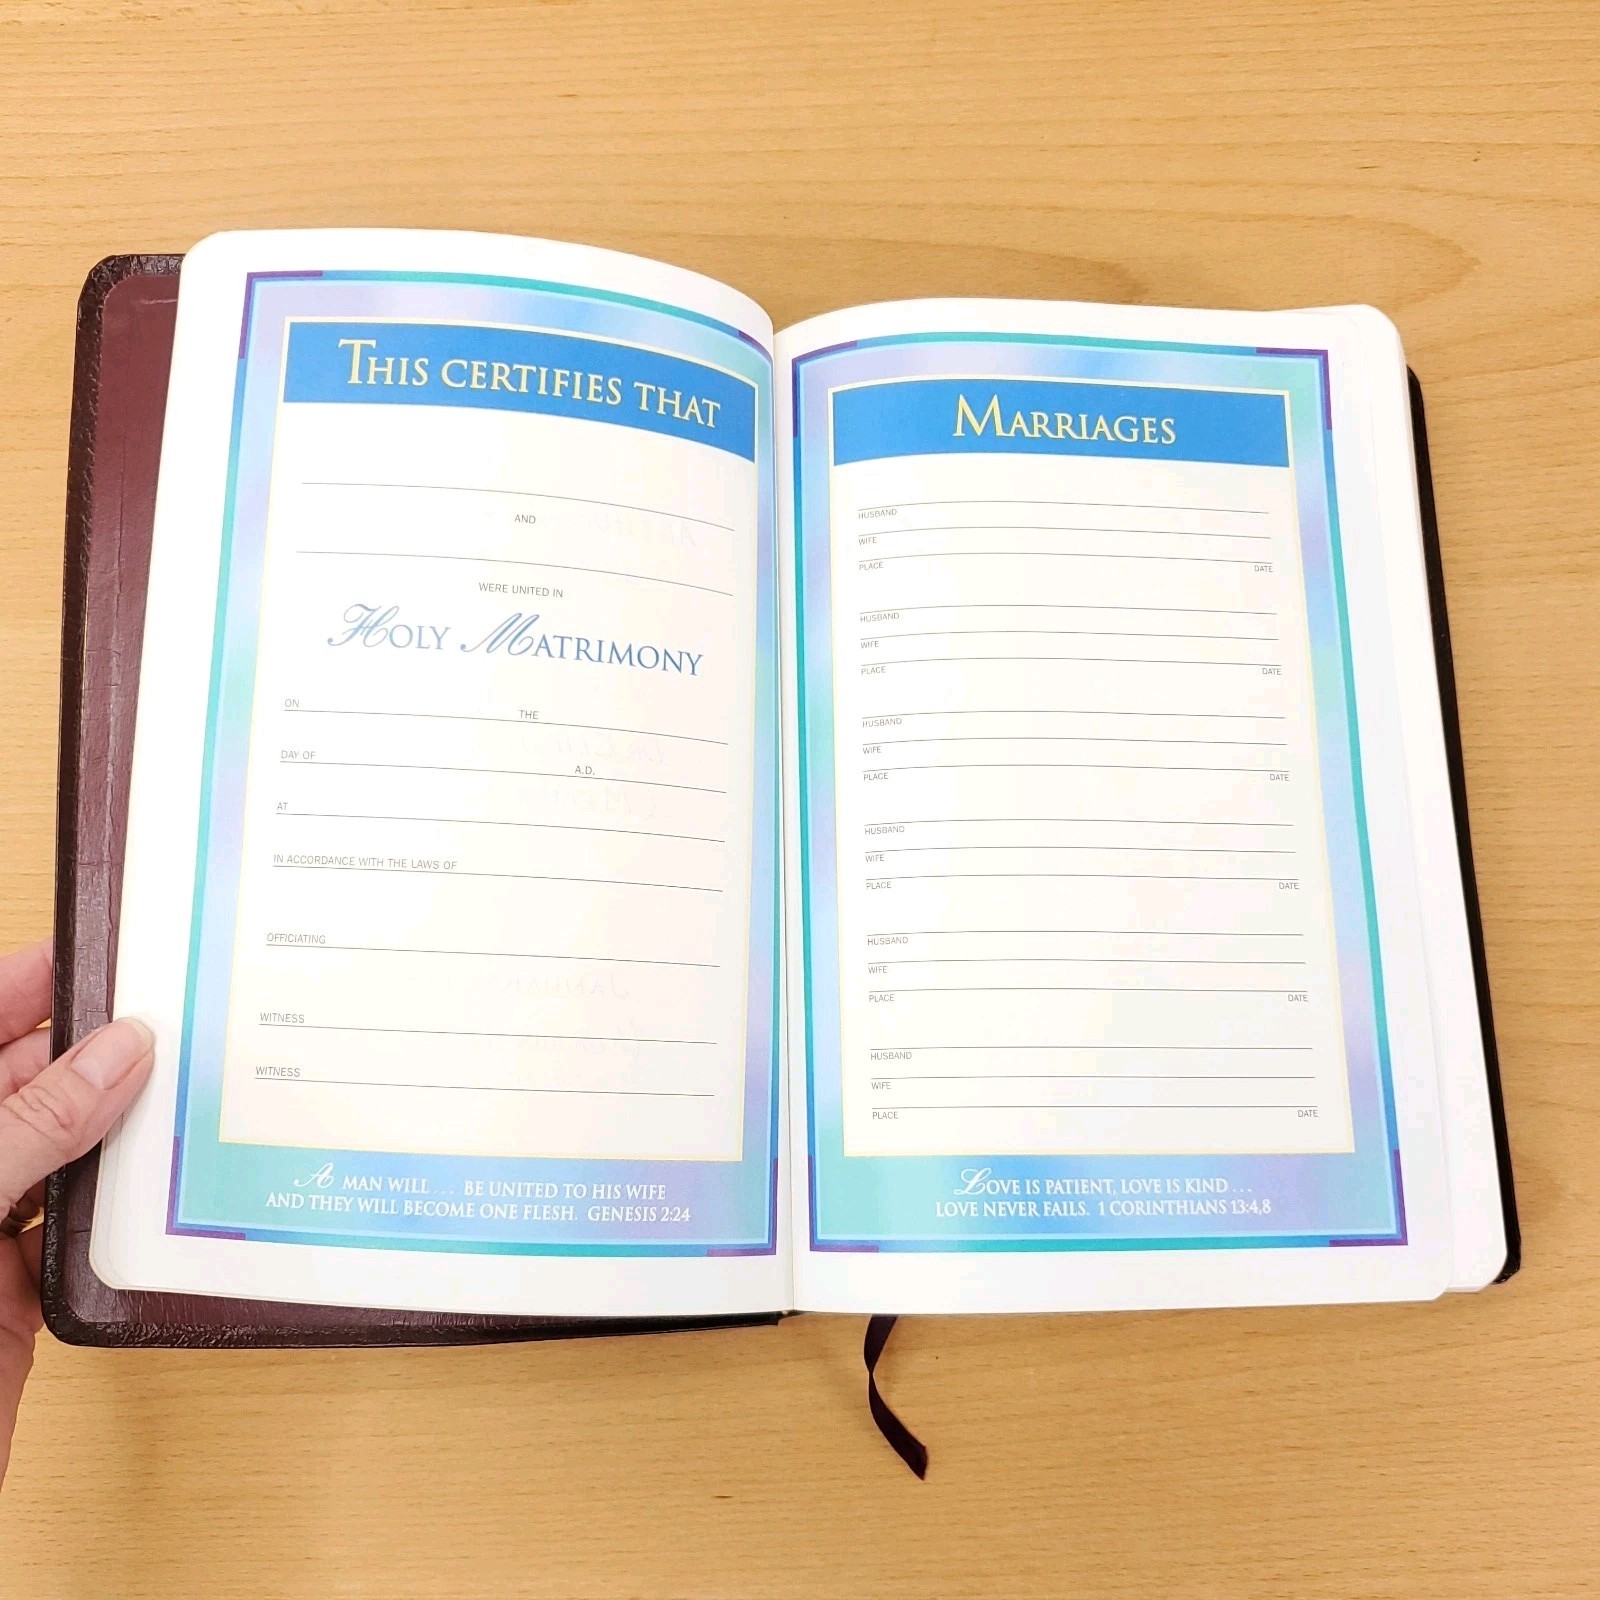 THIS CERTIFIES THAT
AND
WERE UNITED IN
HOLY MATRIMONY
ON THE
DAY OF A.D.
AT
IN ACCORDANCE WITH THE LAWS OF
OFFICIATING
WITNESS
WITNESS
A MAN WILL... BE UNITED TO HIS WIFE
AND THEY WILL BECOME ONE FLESH. GENESIS 2:24
MARRIAGES
HUSBAND
WIFE
PLACE DATE
HUSBAND
WIFE
PLACE DATE
HUSBAND
WIFE
PLACE DATE
HUSBAND
WIFE
PLACE DATE
HUSBAND
WIFE
PLACE DATE
HUSBAND
WIFE
PLACE DATE
LOVE IS PATIENT, LOVE IS KIND...
LOVE NEVER FAILS. 1 CORINTHIANS 13:4,8